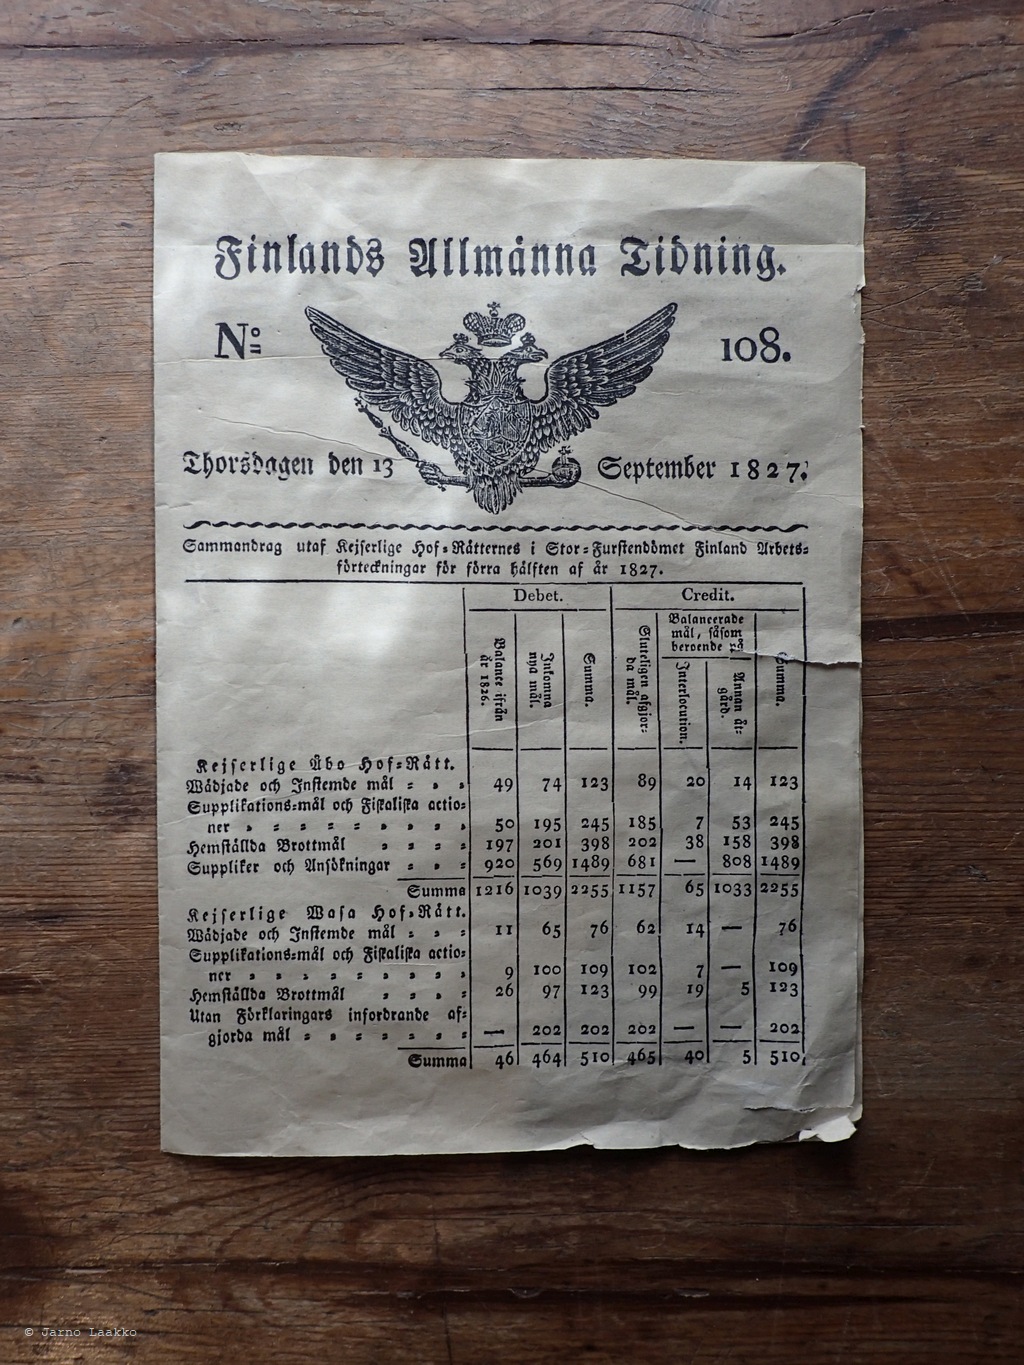 Finlands Allmänna Tidning.
No 108.
Thorsdagen den 13 September 1827.
Sammandrag utaf Kejserlige Hof-Rätternes i Stor-Furstendömet Finland Arbets-
förteckningar för förra hälften af år 1827.
Debet. Credit.
Balance ifrån år 1826. Inkomna nya mål. Summa. Sluteligen afgjorda mål. Balancerade mål, såsom beroende på Interlocution. Annan åtgärd. Summa.
Kejserlige Åbo Hof-Rätt.
Wädjade och Instemde mål - - - 49 74 123 89 20 14 123
Supplikations-mål och Fiskaliska actio-
ner - - - - - - - - - 50 195 245 185 7 53 245
Hemställda Brottmål - - - - 197 201 398 202 38 158 398
Suppliker och Ansökningar - - - 920 569 1489 681 — 808 1489
Summa 1216 1039 2255 1157 65 1033 2255
Kejserlige Wasa Hof-Rätt.
Wädjade och Instemde mål - - - 11 65 76 62 14 — 76
Supplikations-mål och Fiskaliska actio-
ner - - - - - - - - - 9 100 109 102 7 — 109
Hemställda Brottmål - - - - 26 97 123 99 19 5 123
Utan Förklaringars infordrande af-
gjorda mål - - - - - - - — 202 202 202 — — 202
Summa 46 464 510 465 40 5 510
© Jarno Laakko